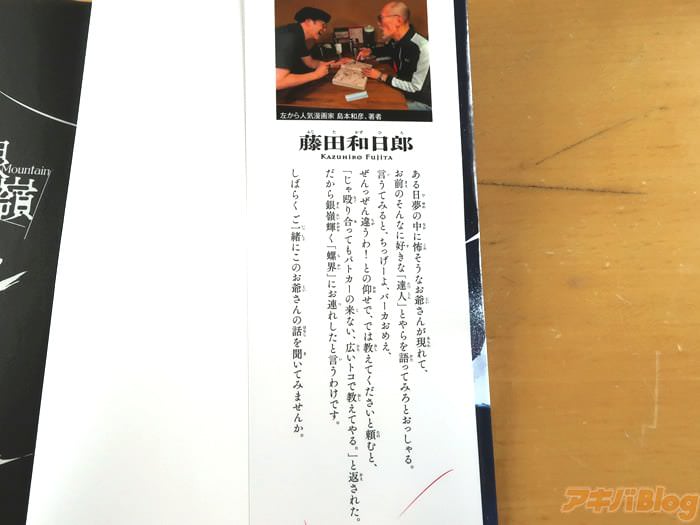 左から人気漫画家 島本和彦、著者
ふじ た かず ひ ろ
藤田和日郎
KAZUHIRO FUJITA
ある日夢の中に怖そうなお爺さんが現れて、
お前のそんなに好きな「達人」とやらを語ってみろとおっしゃる。
言うてみると、ちっげーよ、バーカおめえ、
ぜんっぜん違うわ！との仰せで、では教えてくださいと頼むと、
「じゃ殴り合ってもパトカーの来ない、広いトコで教えてやる。」と返された。
だから銀嶺輝く「螺界」にお連れしたと言うわけです。
しばらくご一緒にこのお爺さんの話を聞いてみませんか。
Mountain
嶺
アキバBlog